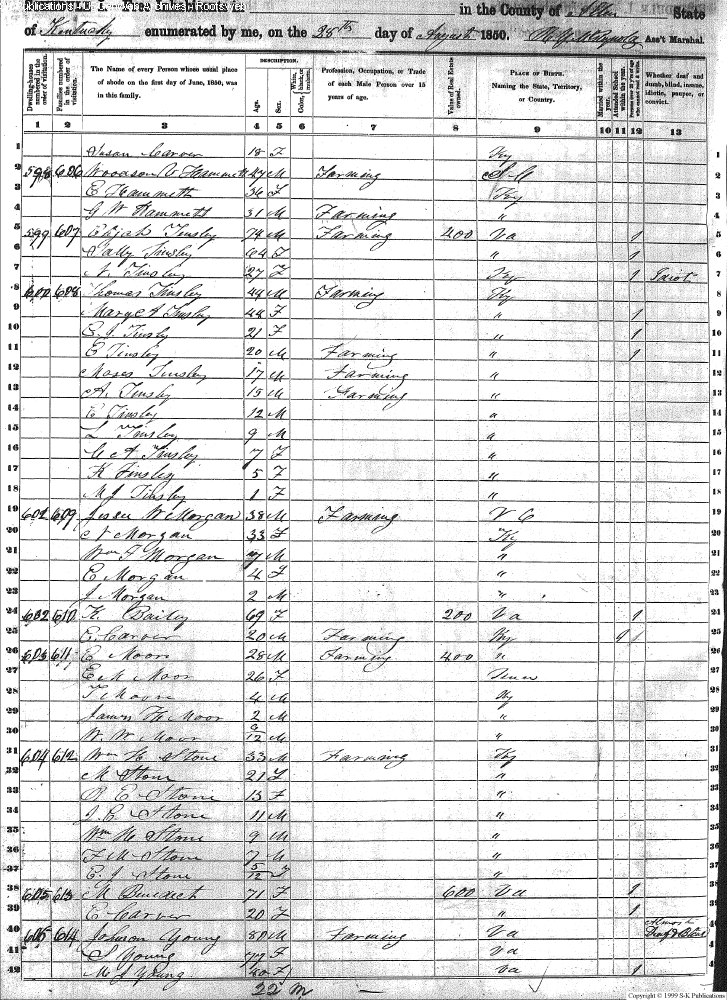 in the County of Allen State
of Kentucky enumerated by me, on the 28th day of August 1850. Ass't Marshal.
Dwelling-houses numbered in the order of visitation.
Families numbered in the order of visitation.
The Name of every Person whose usual place of abode on the first day of June, 1850, was in this family.
DESCRIPTION.
Age.
Sex.
Color,
White, black, or mulatto.
Profession, Occupation, or Trade of each Male Person over 15 years of age.
Value of Real Estate owned.
PLACE OF BIRTH.
Naming the State, Territory, or Country.
Married within the year.
Attended School within the year.
Whether deaf and dumb, blind, insane, idiotic, pauper, or convict.
1 2 3 4 5 6 7 8 9 10 11 12 13
1 Susan Carver 18 F Ky 1
2 598 606 Woodson V Hammett 47 M Farming S C 2
3 E Hammett 36 F Ky 3
4 G W Hammett 31 M Farming " 4
5 599 607 Elijah Tinsley 74 M Farming 400 Va 1 5
6 Sally Tinsley 64 F " 1 6
7 N Tinsley 27 F Ky 1 Idiot 7
8 600 608 Thomas Tinsley 44 M Farming Ky 8
9 Marget Tinsley 44 F " 1 9
10 E J Tinsley 21 F " 1 10
11 E Tinsley 20 M Farming " 1 11
12 Moses Tinsley 17 M Farming " 12
13 A. Tinsley 15 M Farming " 13
14 E Tinsley 12 M " 14
15 L Tinsley 9 M " 15
16 C A Tinsley 7 F " 16
17 K Tinsley 5 F " 17
18 M J Tinsley 1 F " 18
19 601 609 Jesse W Morgan 38 M Farming N C 19
20 N Morgan 33 F Ky 20
21 Wm F Morgan 7 M " 21
22 E Morgan 4 F " 22
23 J Morgan 2 M " 23
24 602 610 K. Bailey 69 F 200 Va 1 24
25 E. Carver 20 M Farming Ky 1 25
26 603 611 E Moore 28 M Farming 400 " 26
27 E M Moor 26 F Tenn 27
28 F Moore 4 M Ky 28
29 James H Moor 2 M " 29
30 W. W Moor /12 M " 30
31 604 612 Wm H Stone 33 M Farming Ky 31
32 M Stone 21 F " 32
33 E Stone 13 F " 33
34 J B Stone 11 M " 34
35 Wm H Stone 9 M " 35
36 F M Stone 7 M " 36
37 E. J Stone 5/12 F " 37
38 605 613 M Benedict 71 F 600 Va 1 38
39 E Carver 20 F " 1 39
40 606 614 Johnson Young 80 M Farming Va Almost Deaf & Blind 40
41 S Young 77 F Va 41
42 M J Young 40 F Va 1 42
22 M
Copyright © 1999 S-K Publications